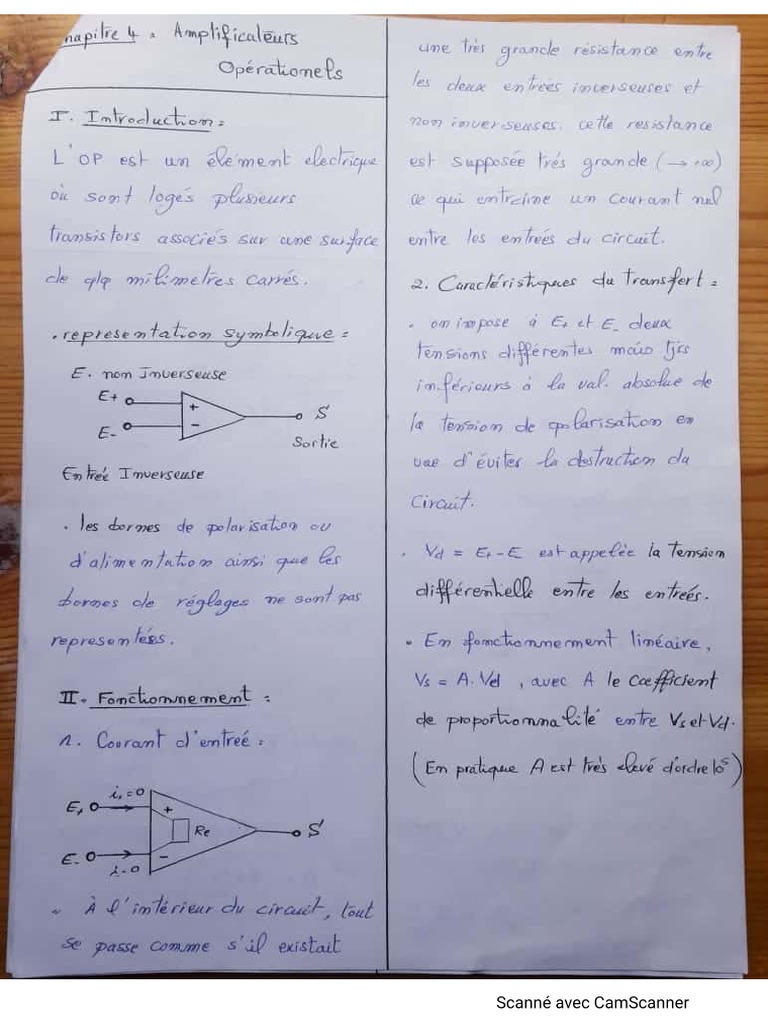 hapitre 4 : Amplificateurs
Opérationels
I. Introduction :
L'OP est un élément electrique
où sont logés plusieurs
transistors associés sur une surface
de qlq milimetres carrés.
. representation symbolique :
E. non Inverseuse
E+
+
S
E-
-
Sortie
Entrée Inverseuse
. les bornes de polarisation ou
d'alimentation ainsi que les
bornes de réglages ne sont pas
representées.
II. Fonctionnement :
1. Courant d'entreé :
i+=0
E+
+
Re
S
E-
-
i-=0
À l'intérieur du circuit, tout
se passe comme s'il existait
une très grande résistance entre
les deux entrées inverseuses et
non inverseuses. cette resistance
est supposée très grande (→ +∞)
ce qui entraine un courant nul
entre les entrées du circuit.
2. Caractéristiques du Transfert :
. on impose à E+ et E- deux
tensions différentes mais tjrs
inférieurs à la val. absolue de
la tension de polarisation en
vue d'évites la destruction du
circuit.
. Vd = E+ - E est appelée la Tension
différentielle entre les entreés.
. En fonctionnement linéaire,
Vs = A. Vd , avec A le Coefficient
de proportionnalité entre Vs et Vd.
(En pratique A est très elevé d'ordre 10⁵)
Scanné avec CamScanner